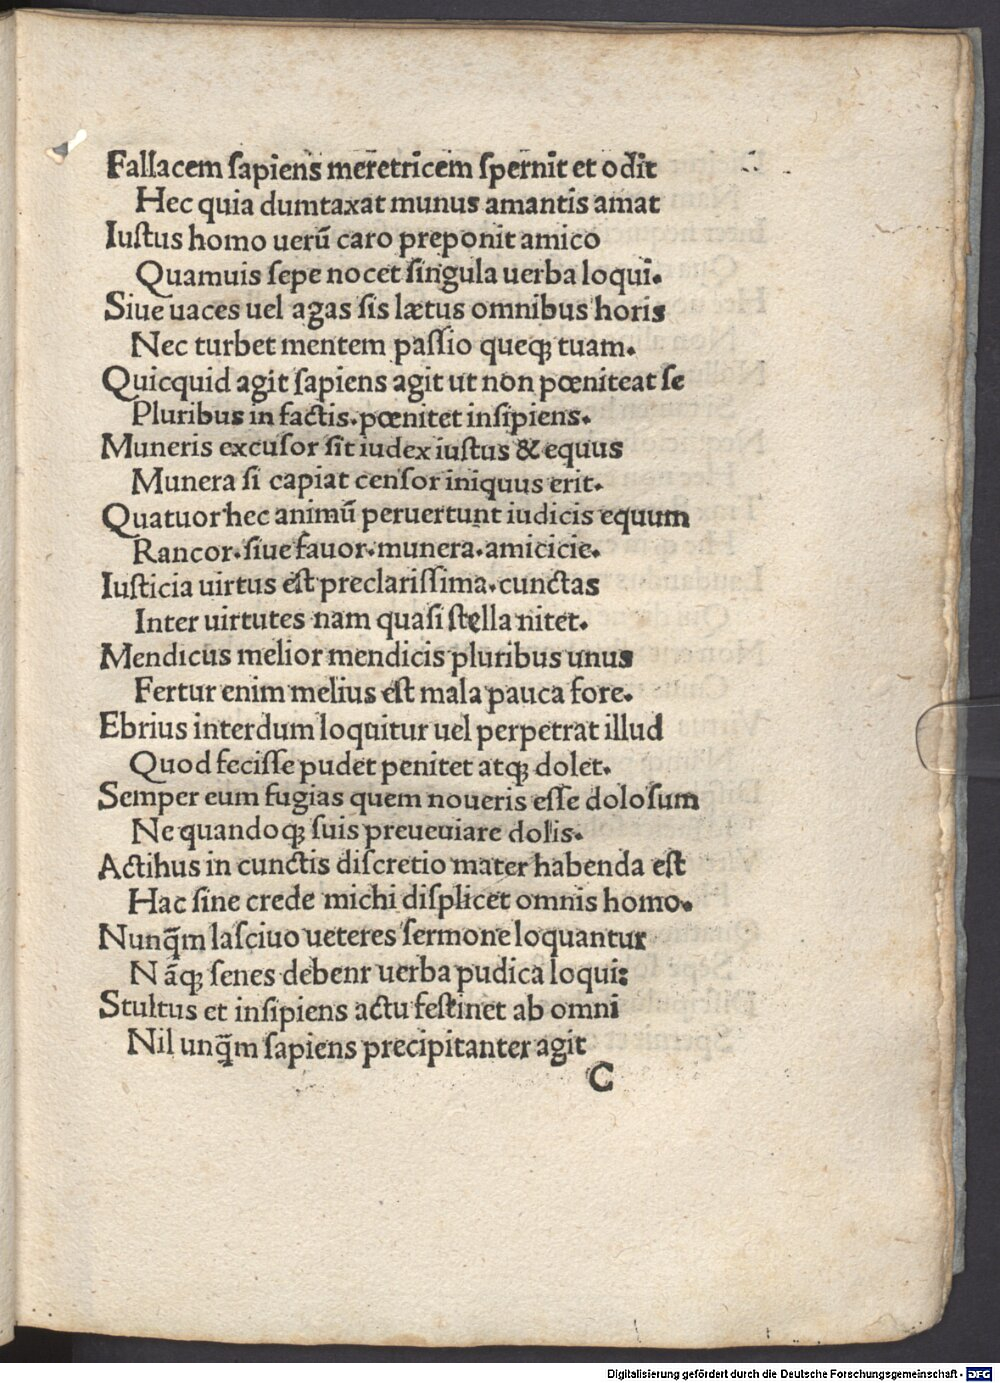 Fallacem sapiens meretricem spernit et odit
Hec quia dumtaxat munus amantis amat
Iustus homo uerū caro preponit amico
Quamuis sepe nocet singula uerba loqui.
Siue uaces uel agas sis lætus omnibus horis
Nec turbet mentem passio queqꝫ tuam.
Quicquid agit sapiens agit ut non pœniteat se
Pluribus in factis.pœnitet insipiens.
Muneris excusor sit iudex iustus & equus
Munera si capiat censor iniquus erit.
Quatuor hec animū peruertunt iudicis equum
Rancor.siue fauor.munera.amicicie.
Iusticia uirtus est preclarissima.cunctas
Inter uirtutes nam quasi stella nitet.
Mendicus melior mendicis pluribus unus
Fertur enim melius est mala pauca fore.
Ebrius interdum loquitur uel perpetrat illud
Quod fecisse pudet penitet atqꝫ dolet.
Semper eum fugias quem noueris esse dolosum
Ne quandoqꝫ suis preueuiare dolis.
Actihus in cunctis discretio mater habenda est
Hac sine crede michi displicet omnis homo.
Nunq̄m lasciuo ueteres sermone loquantur
Nāqꝫ senes debenr uerba pudica loqui:
Stultus et insipiens actu festinet ab omni
Nil unq̄m sapiens precipitanter agit
C
Digitalisierung gefördert durch die Deutsche Forschungsgemeinschaft - DFG